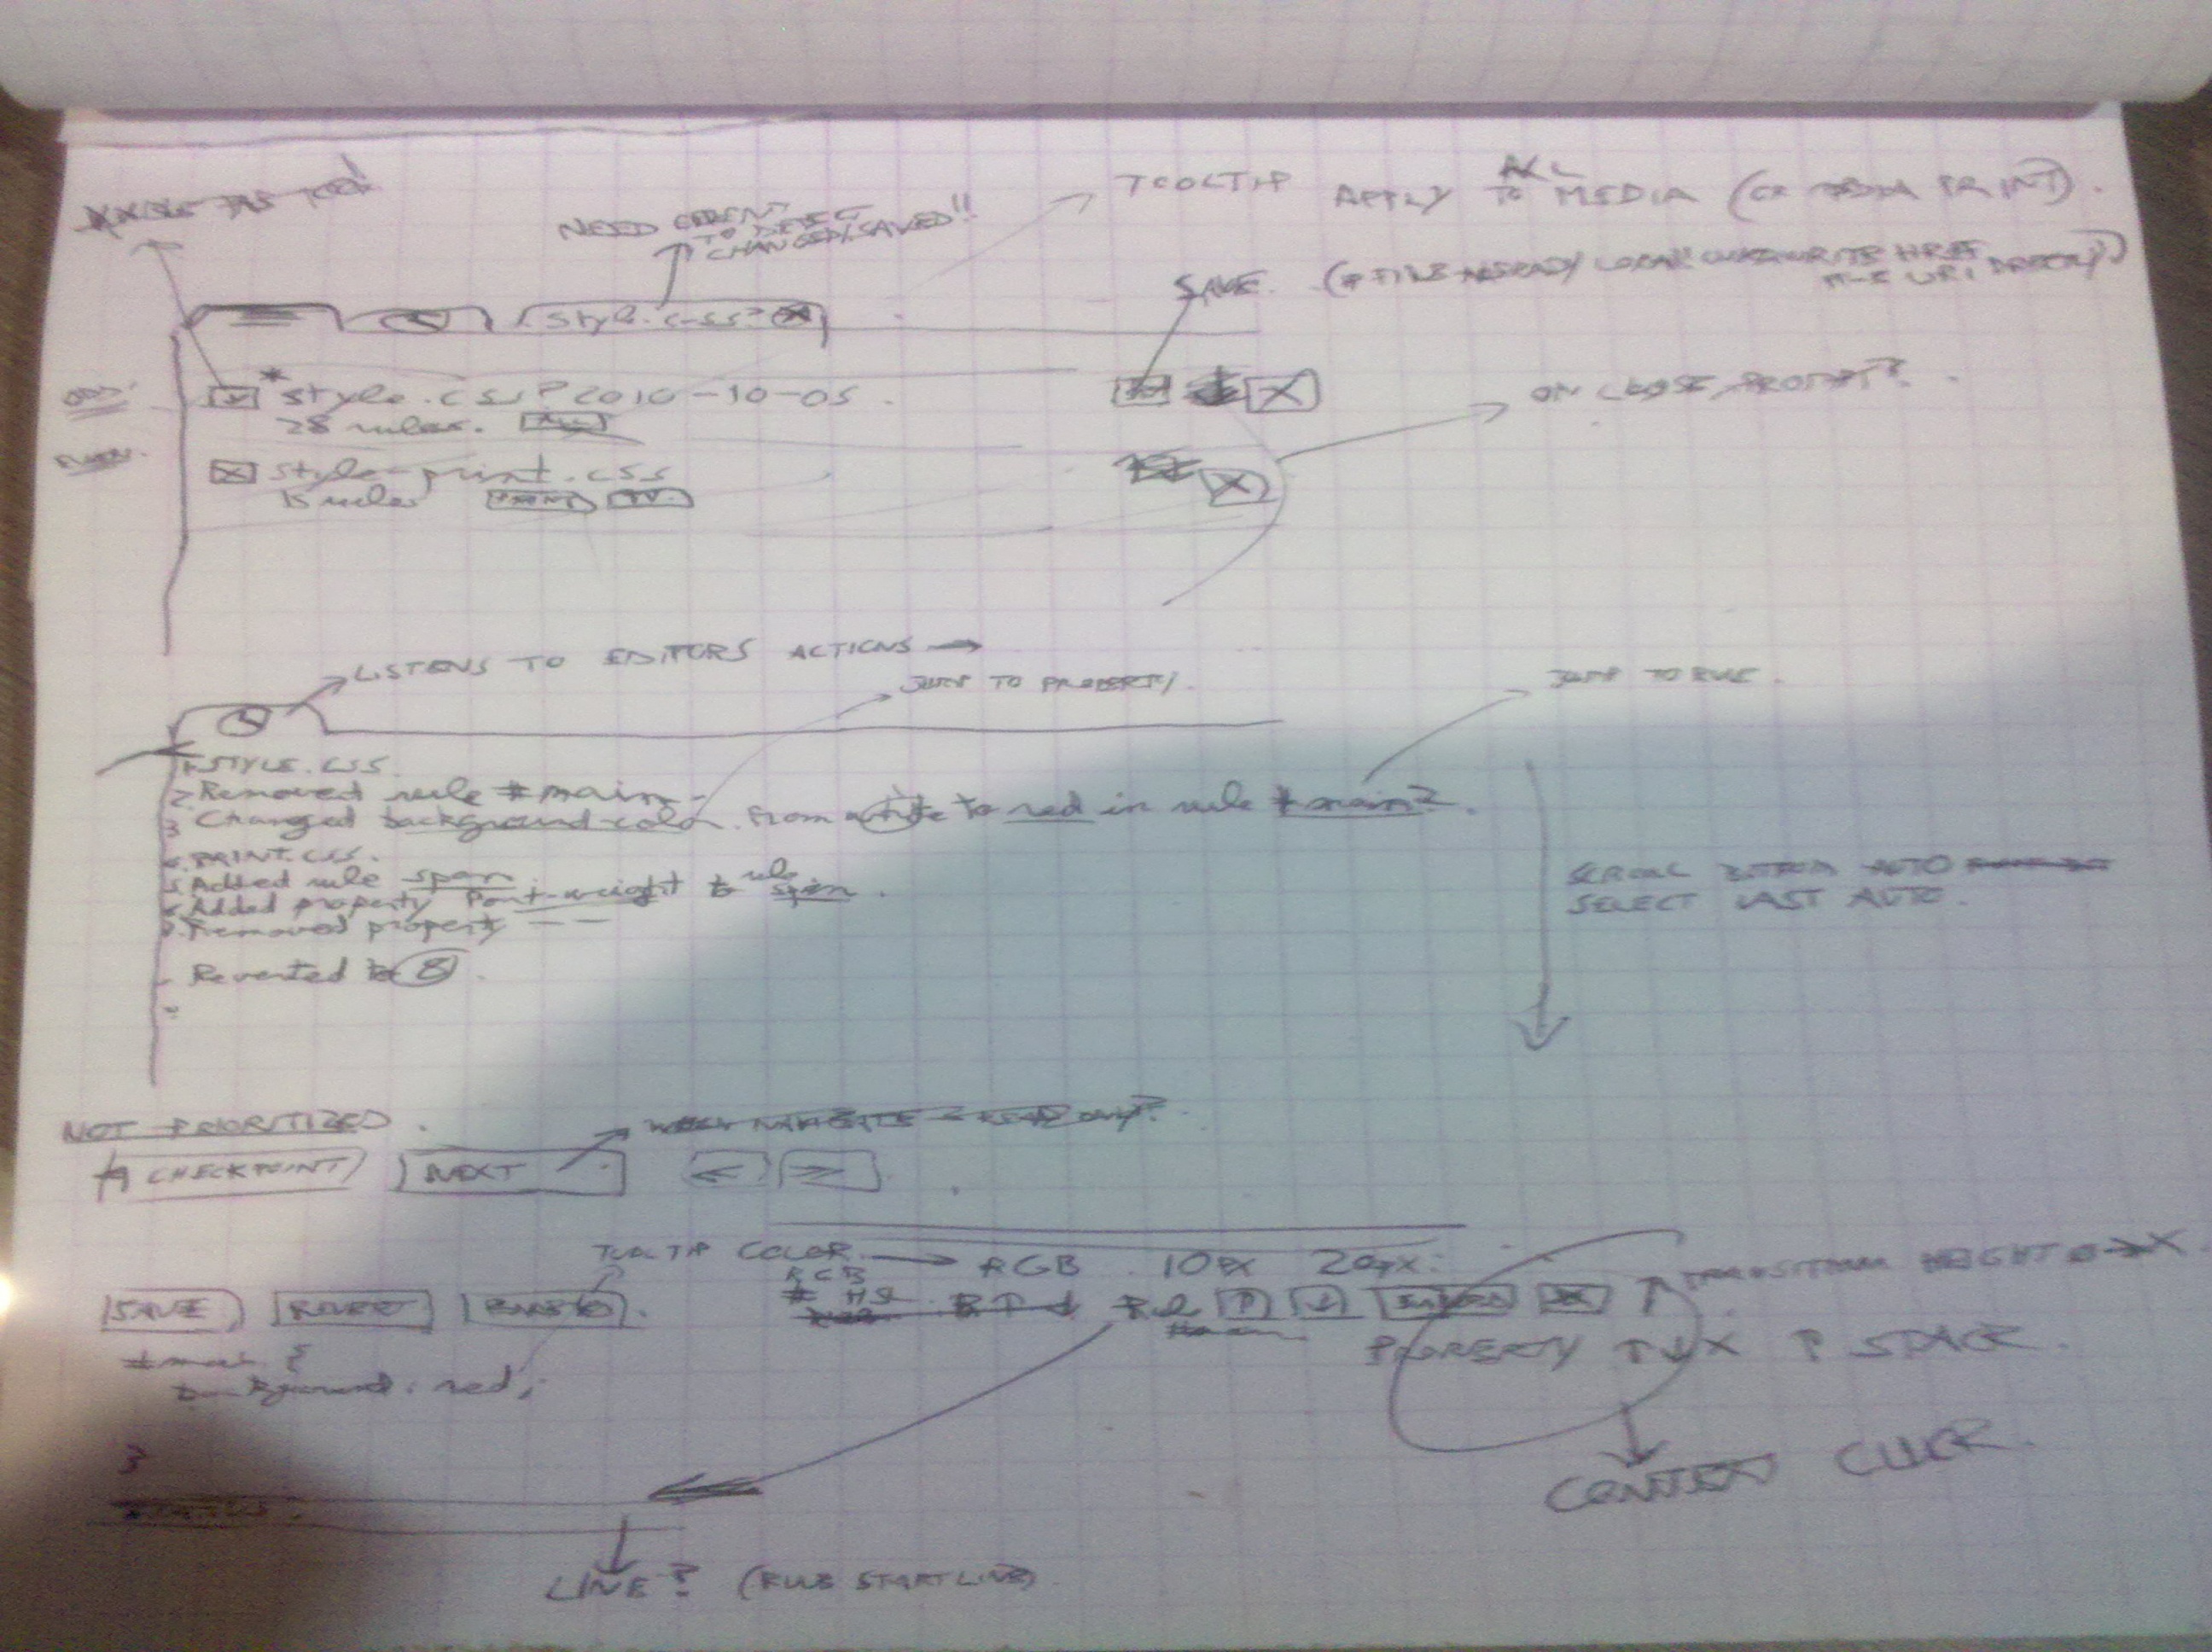 TOOLTIP APPLY TO ALL MEDIA (OR MEDIA PRINT).
NEED EVENT
TO DETECT
CHANGED/SAVED!!
SAVE. (IF FILE ALREADY LOCAL OVERWRITE HREF
URI DIRECTLY)
style.css? X
ODD.
* style.css?2010-10-05.
28 rules. ALL
ON CLOSE, PROMPT?
EVEN.
style-print.css
15 rules PRINT TV
LISTENS TO EDITORS ACTIONS →
JUMP TO PROPERTY.
JUMP TO RULE.
1 STYLE.CSS.
2. Removed rule #main-
3 Changed background-color from white to red in rule #main2.
4. PRINT.CSS.
5 Added rule span
6 Added property font-weight to rule span.
7. Removed property --
- Reverted to 8.
SCROLL BOTTOM AUTO
SELECT LAST AUTO.
NOT PRIORITIZED.
CHECKPOINT NEXT ← →
TOOLTIP COLOR → RGB 10px 20px.
RGB
# HSL
SAVE REVERT
Rule ↑ ↓
TRANSITION HEIGHT 0 → X
PROPERTY ↑↓X ↑ SPACE.
#main {
background: red;
}
STATUS.
CONTEXT CLICK.
LINE? (RULE START LINE)